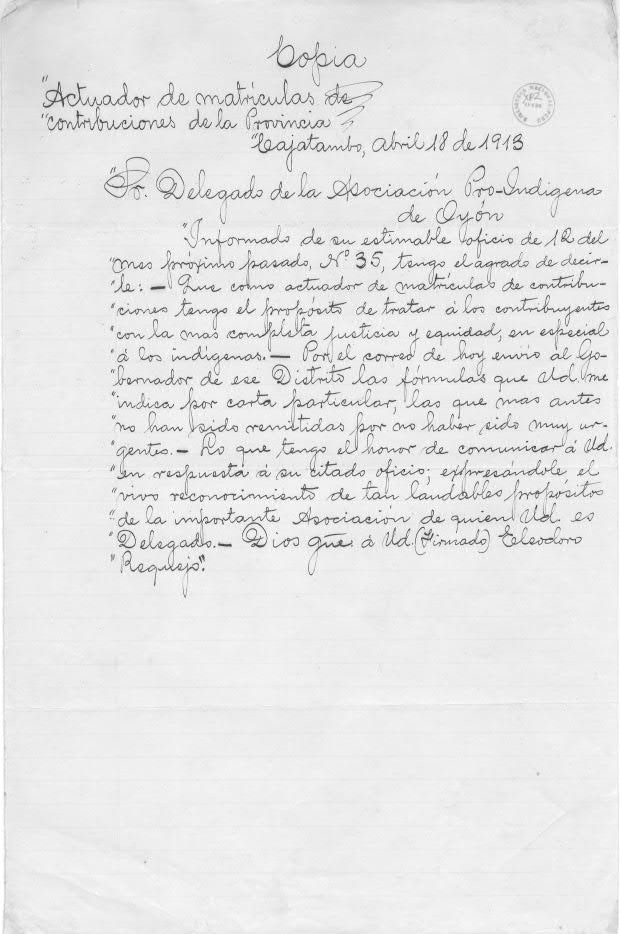 Copia
"Actuador de matrículas de
"contribuciones de la Provincia
"Cajatambo, Abril 18 de 1913
"Sr. Delegado de la Asociación Pro-Indigena
de Oyón
"Informado de su estimable oficio de 12 del
"mes próximo pasado, Nº 35, tengo el agrado de decir-
"le:— Que como actuador de matrículas de contribu-
"ciones tengo el propósito de tratar á los contribuyentes
"con la mas completa justicia y equidad, en especial
"á los indígenas.— Por el correo de hoy envío al Go-
"bernador de ese Distrito las fórmulas que Ud. me
"indica por carta particular, las que mas antes
"no han sido remitidas por no haber sido muy ur-
"gentes.— Lo que tengo el honor de comunicar á Ud.
"en respuesta á su citado oficio; expresándole el
"vivo reconocimiento de tan laudables propósitos
"de la importante Asociación de quien Ud. es
"Delegado.— Dios gűe á Ud. (Firmado) Eleodoro
"Requejo".
BIBLIOTECA NACIONAL
PERU